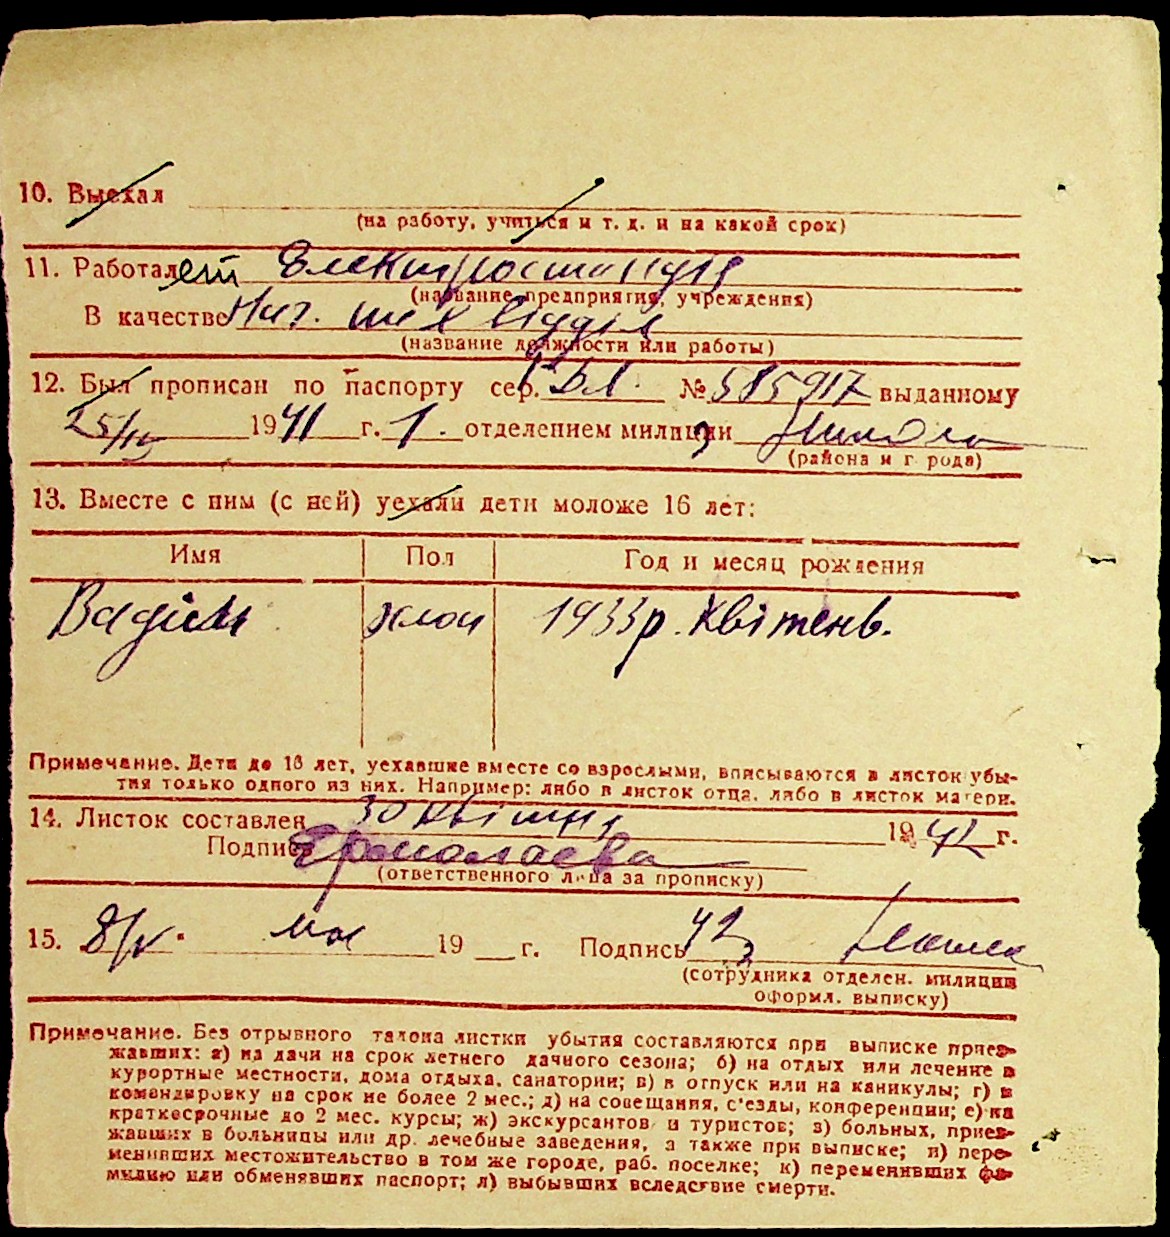 10. Выехал
(на работу, учиться и т. д. и на какой срок)
11. Работает Електростанция
(название предприятия, учреждения)
В качестве Нач. тех відділ
(название должности или работы)
12. Был прописан по паспорту сер. № 585917 выданному
25/IV 1941 г. 1. отделением милиции
(района и города)
13. Вместе с ним (с ней) уехали дети моложе 16 лет:
Имя Пол Год и месяц рождения
Вадим 1933 р. Квітень.
Примечание. Дети до 16 лет, уехавшие вместе со взрослыми, вписываются в листок убы-
тия только одного из них. Например: либо в листок отца, либо в листок матери.
14. Листок составлен 30 квітня 1942 г.
Подпись Ермолаева
(ответственного лица за прописку)
15. 8/V мая 19 г. Подпись 42
(сотрудника отделен. милиции
оформл. выписку)
Примечание. Без отрывного талона листки убытия составляются при выписке приез-
жавших: а) на дачи на срок летнего дачного сезона; б) на отдых или лечение в
курортные местности, дома отдыха, санатории; в) в отпуск или на каникулы; г) в
командировку на срок не более 2 мес.; д) на совещания, с'езды, конференции; е) на
краткосрочные до 2 мес. курсы; ж) экскурсантов и туристов; з) больных, приез-
жавших в больницы или др. лечебные заведения, а также при выписке; и) пере-
менивших местожительство в том же городе, раб. поселке; к) переменивших фа-
милию или обменявших паспорт; л) выбывших вследствие смерти.